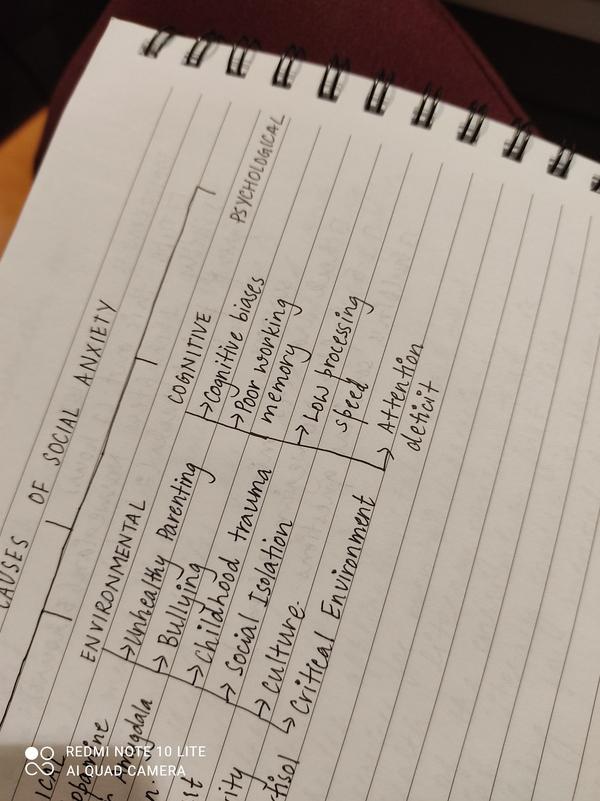 CAUSES OF SOCIAL ANXIETY
ENVIRONMENTAL
→Unhealthy Parenting
→ Bullying
→Childhood trauma
→ Social Isolation
→ Culture.
→ Critical Environment
COGNITIVE
→Cognitive biases
→Poor working
memory
→ Low processing
speed
→ Attention
deficit
PSYCHOLOGICAL
Amygdala
REDMI NOTE 10 LITE
AI QUAD CAMERA